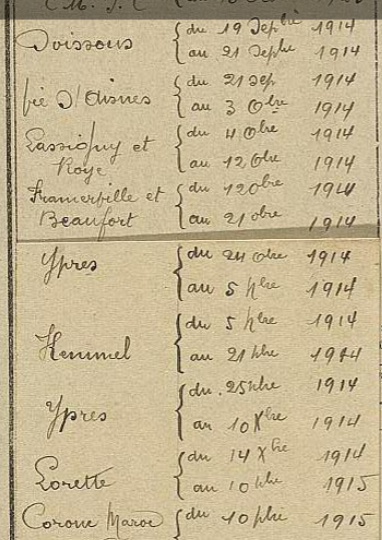 Soissons
du 19 Septbre 1914
au 21 Septbre 1914
fié d'Aisnes
du 21 sep 1914
au 3 Obre 1914
Lassigny et
Roye
du 4 Obre 1914
au 12 Obre 1914
Framerville et
Beaufort
du 12 Obre 1914
au 21 obre 1914
Ypres
du 24 Obre 1914
au 5 9bre 1914
Kemmel
du 5 9bre 1914
au 21 9bre 1914
Ypres
du 25 9bre 1914
au 10 Xbre 1914
Lorette
du 14 Xbre 1914
au 1915
du 1915